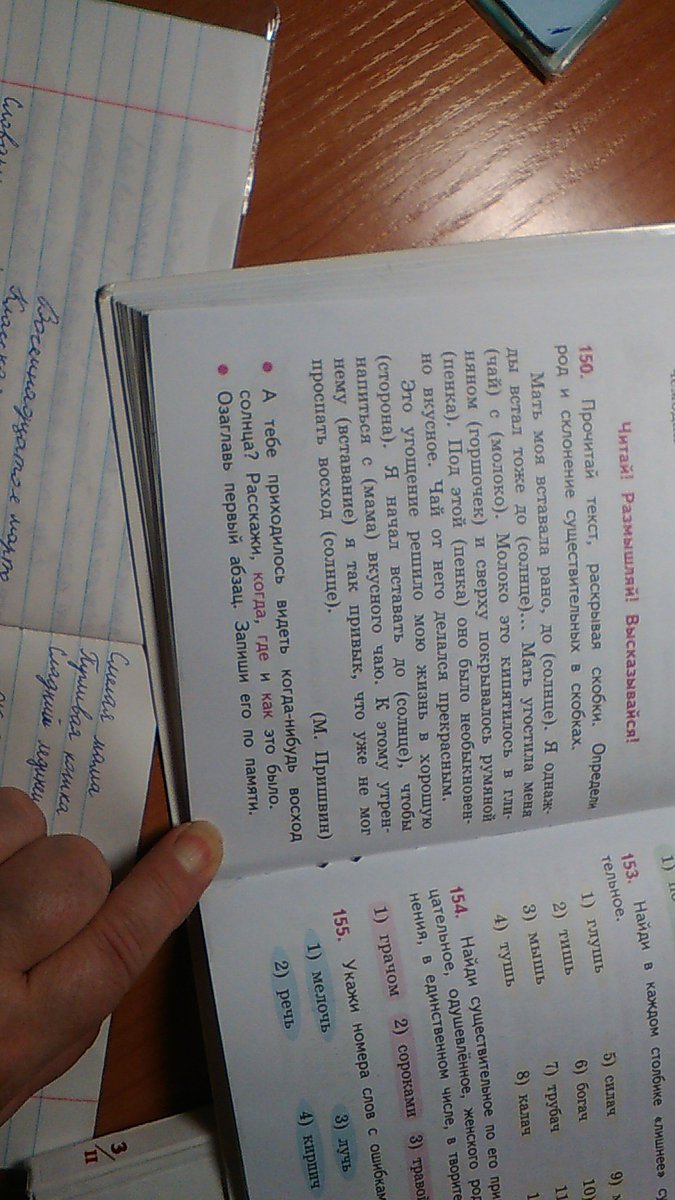 Читай! Размышляй! Высказывайся!
150. Прочитай текст, раскрывая скобки. Определи
род и склонение существительных в скобках.
Мать моя вставала рано, до (солнце). Я однаж-
ды встал тоже до (солнце)... Мать угостила меня
(чай) с (молоко). Молоко это кипятилось в гли-
няном (горшочек) и сверху покрывалось румяной
(пенка). Под этой (пенка) оно было необыкновен-
но вкусное. Чай от него делался прекрасным.
Это угощение решило мою жизнь в хорошую
(сторона). Я начал вставать до (солнце), чтобы
напиться с (мама) вкусного чаю. К этому утрен-
нему (вставание) я так привык, что уже не мог
проспать восход (солнце).
(М. Пришвин)
• А тебе приходилось видеть когда-нибудь восход
солнца? Расскажи, когда, где и как это было.
• Озаглавь первый абзац. Запиши его по памяти.
153. Найди в каждом столбике «лишнее»
тельное.
1) глушь 5) силач 9)
2) тишь 6) богач 10)
3) мышь 7) трубач
4) тушь 8) калач
154. Найди существительное по его при
цательное, одушевлённое, женского
нения, в единственном числе, в
1) грачом 2) сороками 3)
155. Укажи номера слов с
1) мелочь 3) лучь
2) речь 4) кирпич
Восемнадцатое марта
Классная
мама
кошка
3/II